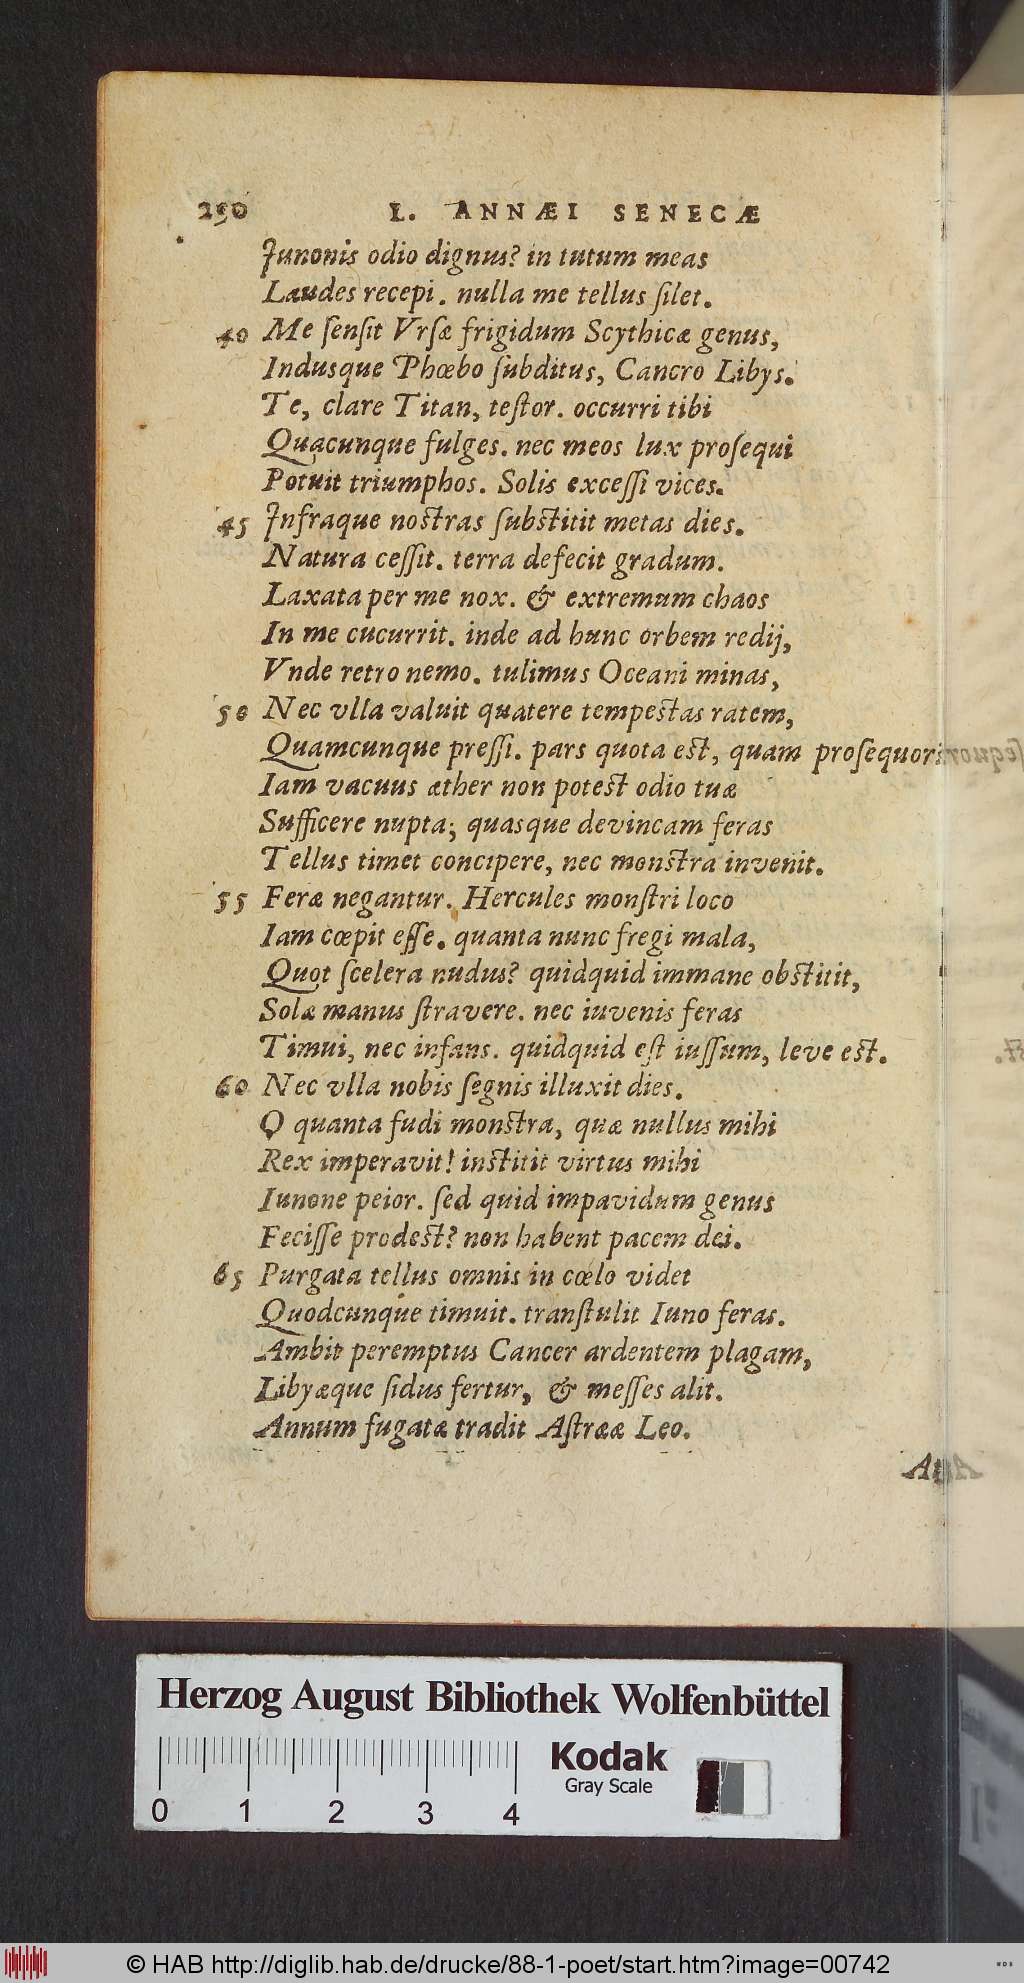 290 L. ANNÆI SENECÆ
Junonis odio dignus? in tutum meas
Laudes recepi. nulla me tellus ſilet.
40 Me ſenſit Vrſæ frigidum Scythicæ genus,
Indusque Phœbo ſubditus, Cancro Libys.
Te, clare Titan, teſtor. occurri tibi
Quacunque fulges. nec meos lux proſequi
Potuit triumphos. Solis exceſſi vices.
45 Infraque noſtras ſubſtitit metas dies.
Natura ceſſit. terra defecit gradum.
Laxata per me nox. & extremum chaos
In me cucurrit. inde ad hunc orbem redij,
Vnde retro nemo. tulimus Oceani minas,
50 Nec vlla valuit quatere tempeſtas ratem,
Quamcunque preſſi. pars quota eſt, quam proſequor.
Iam vacuus æther non poteſt odio tuæ
Sufficere nuptæ; quasque devincam feras
Tellus timet concipere, nec monſtra invenit.
55 Feræ negantur. Hercules monſtri loco
Iam cœpit eſſe. quanta nunc fregi mala,
Quot ſcelera nudus? quidquid immane obſtitit,
Solæ manus ſtravere. nec iuvenis feras
Timui, nec infans. quidquid eſt iuſſum, leve eſt.
60 Nec vlla nobis ſegnis illuxit dies.
O quanta fudi monſtra, quæ nullus mihi
Rex imperavit! inſtitit virtus mihi
Iunone peior. ſed quid impavidum genus
Feciſſe prodeſt? non habent pacem dei.
65 Purgata tellus omnis in cœlo videt
Quodcunque timuit. tranſtulit Iuno feras.
Ambit peremptus Cancer ardentem plagam,
Libyæque ſidus fertur, & meſſes alit.
Annum fugatæ tradit Aſtrææ Leo.
Herzog August Bibliothek Wolfenbüttel
0 1 2 3 4
Kodak
Gray Scale
© HAB http://diglib.hab.de/drucke/88-1-poet/start.htm?image=00742